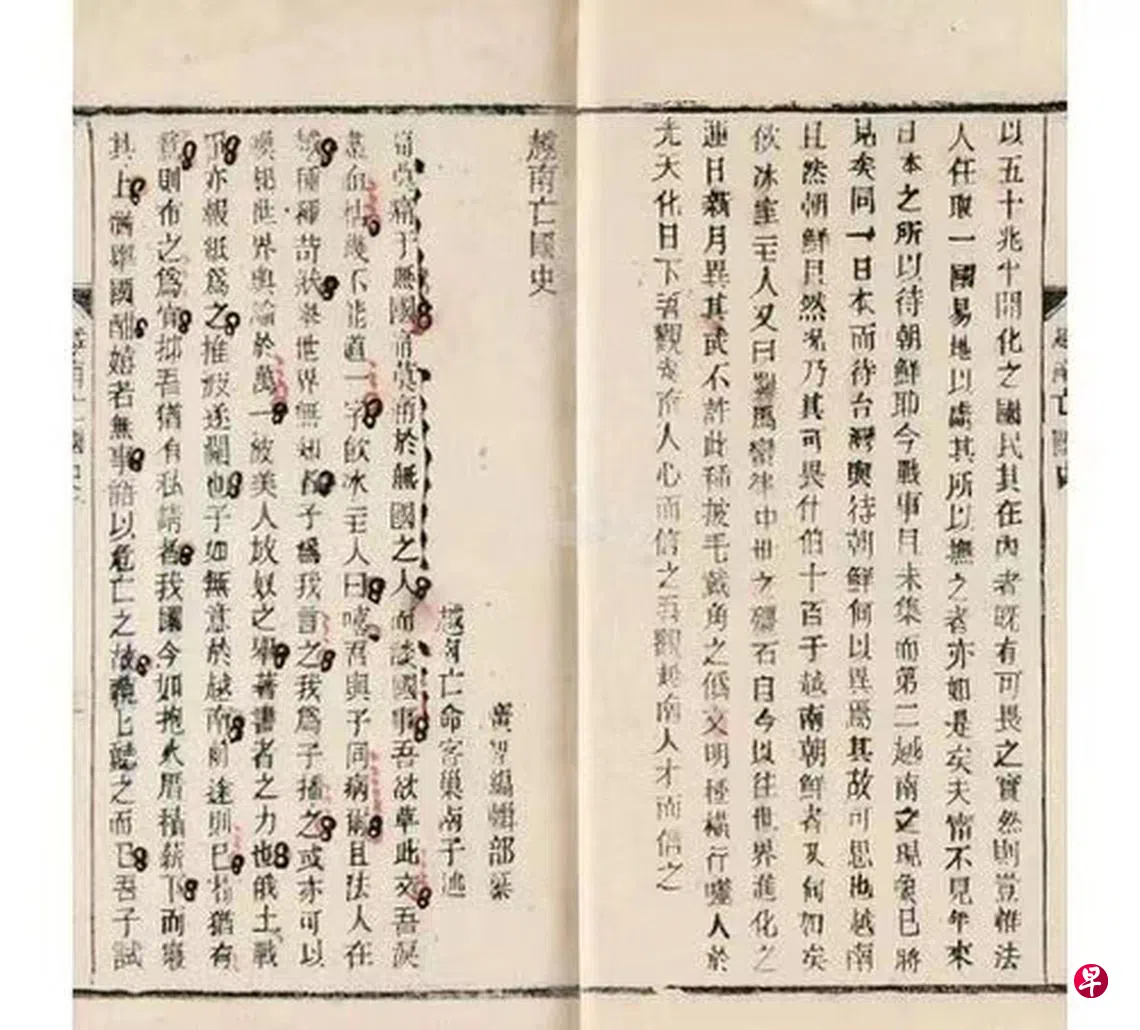 越南亡國史
以五十兆半開化之國民其在內者旣有可畏之實然則豈惟法
人任取一國易地以處其所以撫之者亦如是矣夫寧不見年來
日本之所以待朝鮮耶今戰事且未集而第二越南之現象已將
見矣同一日本而待台灣與待朝鮮何以異焉其故可思也越南
且然朝鮮且然况乃其可畏什伯十百于越南朝鮮者又何如矣
飲冰室主人又曰羅馬蠻律中世之殭石自今以往世界進化之
運日新月異其或不許此種披毛戴角之低文明種橫行噬人於
光天化日下吾觀越南人心而信之吾觀越南人才而信之
越南亡國史
廣智編輯部纂
越南亡命客巢南子述
痛莫痛于無國痛莫痛於無國之人而談國事吾欲草此文吾淚
盡血枯幾不能道一字飲冰室主人曰嘻吾與子同病爾且法人在
越種種苛狀舉世界無知者子爲我言之我爲子播之或亦可以
喚起世界輿論於萬一彼美人放奴之舉著書者之力也俄土戰
事亦報紙爲之推波逐瀾也子如無意於越南前途則已苟猶有
意則布之爲宜抑吾猶有私請者我國今如抱火厝積薪下而寢
其上舉國酣嬉若無事語以危亡之故上聽之而已吾子試
早